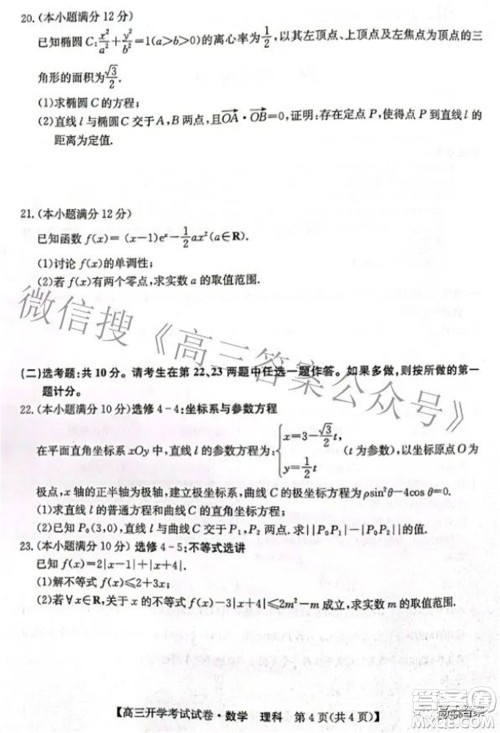 20.(本小题满分12分)
已知椭圆C:x²/a²+y²/b²=1(a>b>0)的离心率为1/2,以其左顶点、上顶点及左焦点为顶点的三
角形的面积为√3/2.
(1)求椭圆C的方程;
(2)直线l与椭圆C交于A,B两点,且OA→·OB→=0,证明:存在定点P,使得点P到直线l的
距离为定值.
21.(本小题满分12分)
已知函数f(x)=(x-1)eˣ-1/2ax²(a∈R).
(1)讨论f(x)的单调性;
(2)若f(x)有两个零点,求实数a的取值范围.
(二)选考题:共10分。请考生在第22、23两题中任选一题作答。如果多做,则按所做的第一
题计分。
22.(本小题满分10分)选修4-4:坐标系与参数方程
在平面直角坐标系xOy中,直线l的参数方程为:{x=3-√3/2t, y=1/2t (t为参数),以坐标原点O为
极点,x轴的正半轴为极轴,建立极坐标系,曲线C的极坐标方程为ρsin²θ-4cosθ=0.
(1)求直线l的普通方程和曲线C的直角坐标方程;
(2)已知P₀(3,0),直线l与曲线C交于P₁,P₂两点,求||P₀P₁|-|P₀P₂||.
23.(本小题满分10分)选修4-5:不等式选讲
已知f(x)=2|x+1|+|x+4|.
(1)解不等式f(x)≤2+3x;
(2)若∀x∈R,关于x的不等式f(x)-3|x+4|≤2m²-m成立,求实数m的取值范围.
【高三开学考试试卷·数学 理科 第4页(共4页)】
微信搜《高三答案公众号》